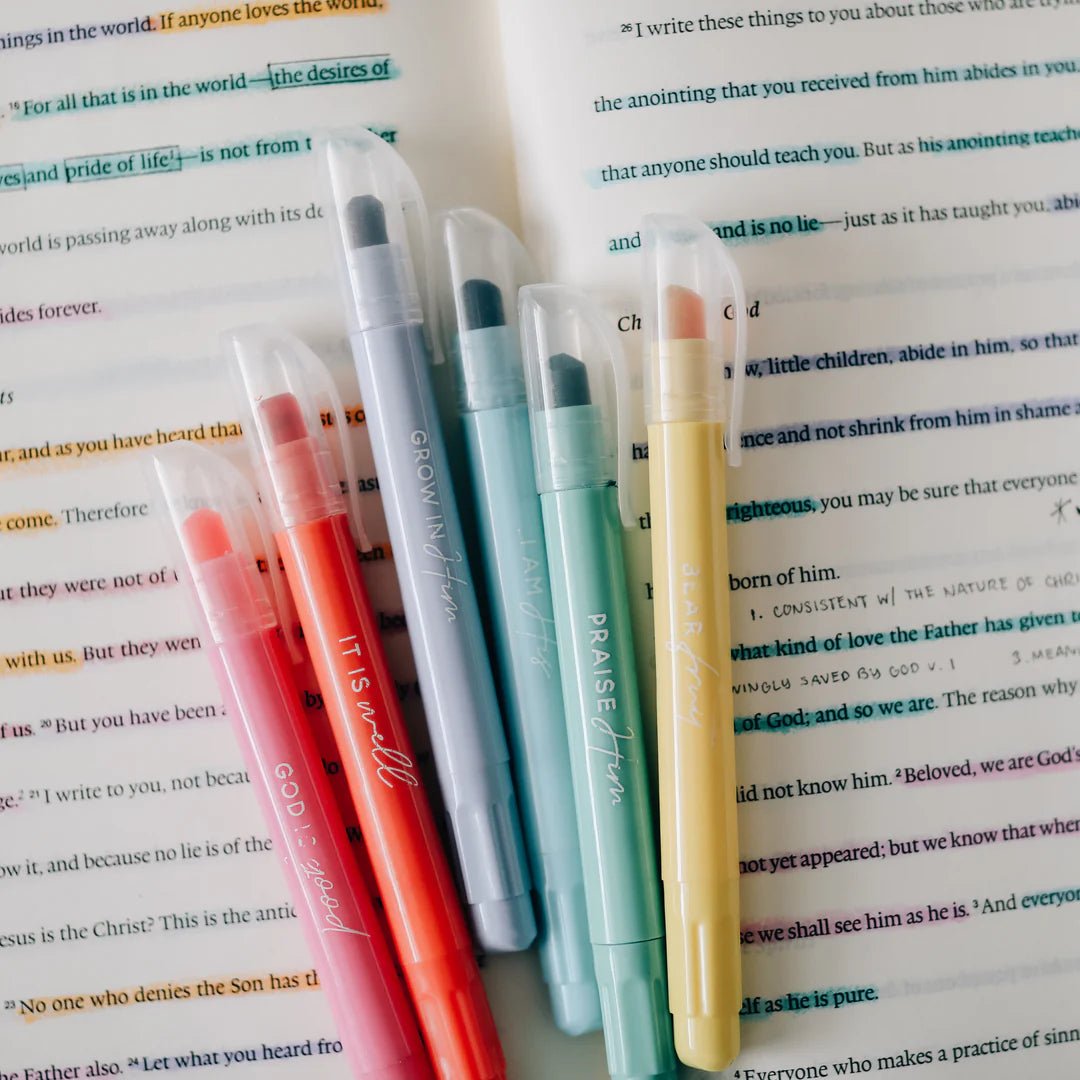 things in the world. If anyone loves the world,
. ¹⁶For all that is in the world—the desires of
yes and pride of life¹—is not from
world is passing away along with its
ides forever.
ts
r, and as you have heard that
come. Therefore
ut they were not of
with us. But they
of us. ²⁰But you have been
ge.² ²¹I write to you, not
ow it, and because no lie is of the
esus is the Christ? This is the
²³No one who denies the Son has
he Father also. ²⁴Let what you heard
²⁶I write these things to you about those who are
the anointing that you received from him abides in you,
that anyone should teach you. But as his anointing
and and is no lie—just as it has taught you,
w, little children, abide in him, so that
ence and not shrink from him in shame
righteous, you may be sure that everyone
born of him.
1. CONSISTENT W/ THE NATURE OF
what kind of love the Father has given
INGLY SAVED BY GOD V. 1 3.
of God; and so we are. The reason why
did not know him. ²Beloved, we are God's
not yet appeared; but we know that
se we shall see him as he is. ³And
elf as he is pure.
⁴Everyone who makes a practice of
GOD IS good
IT IS well
GROW IN Him
I AM His
PRAISE Him
BEAR fruit